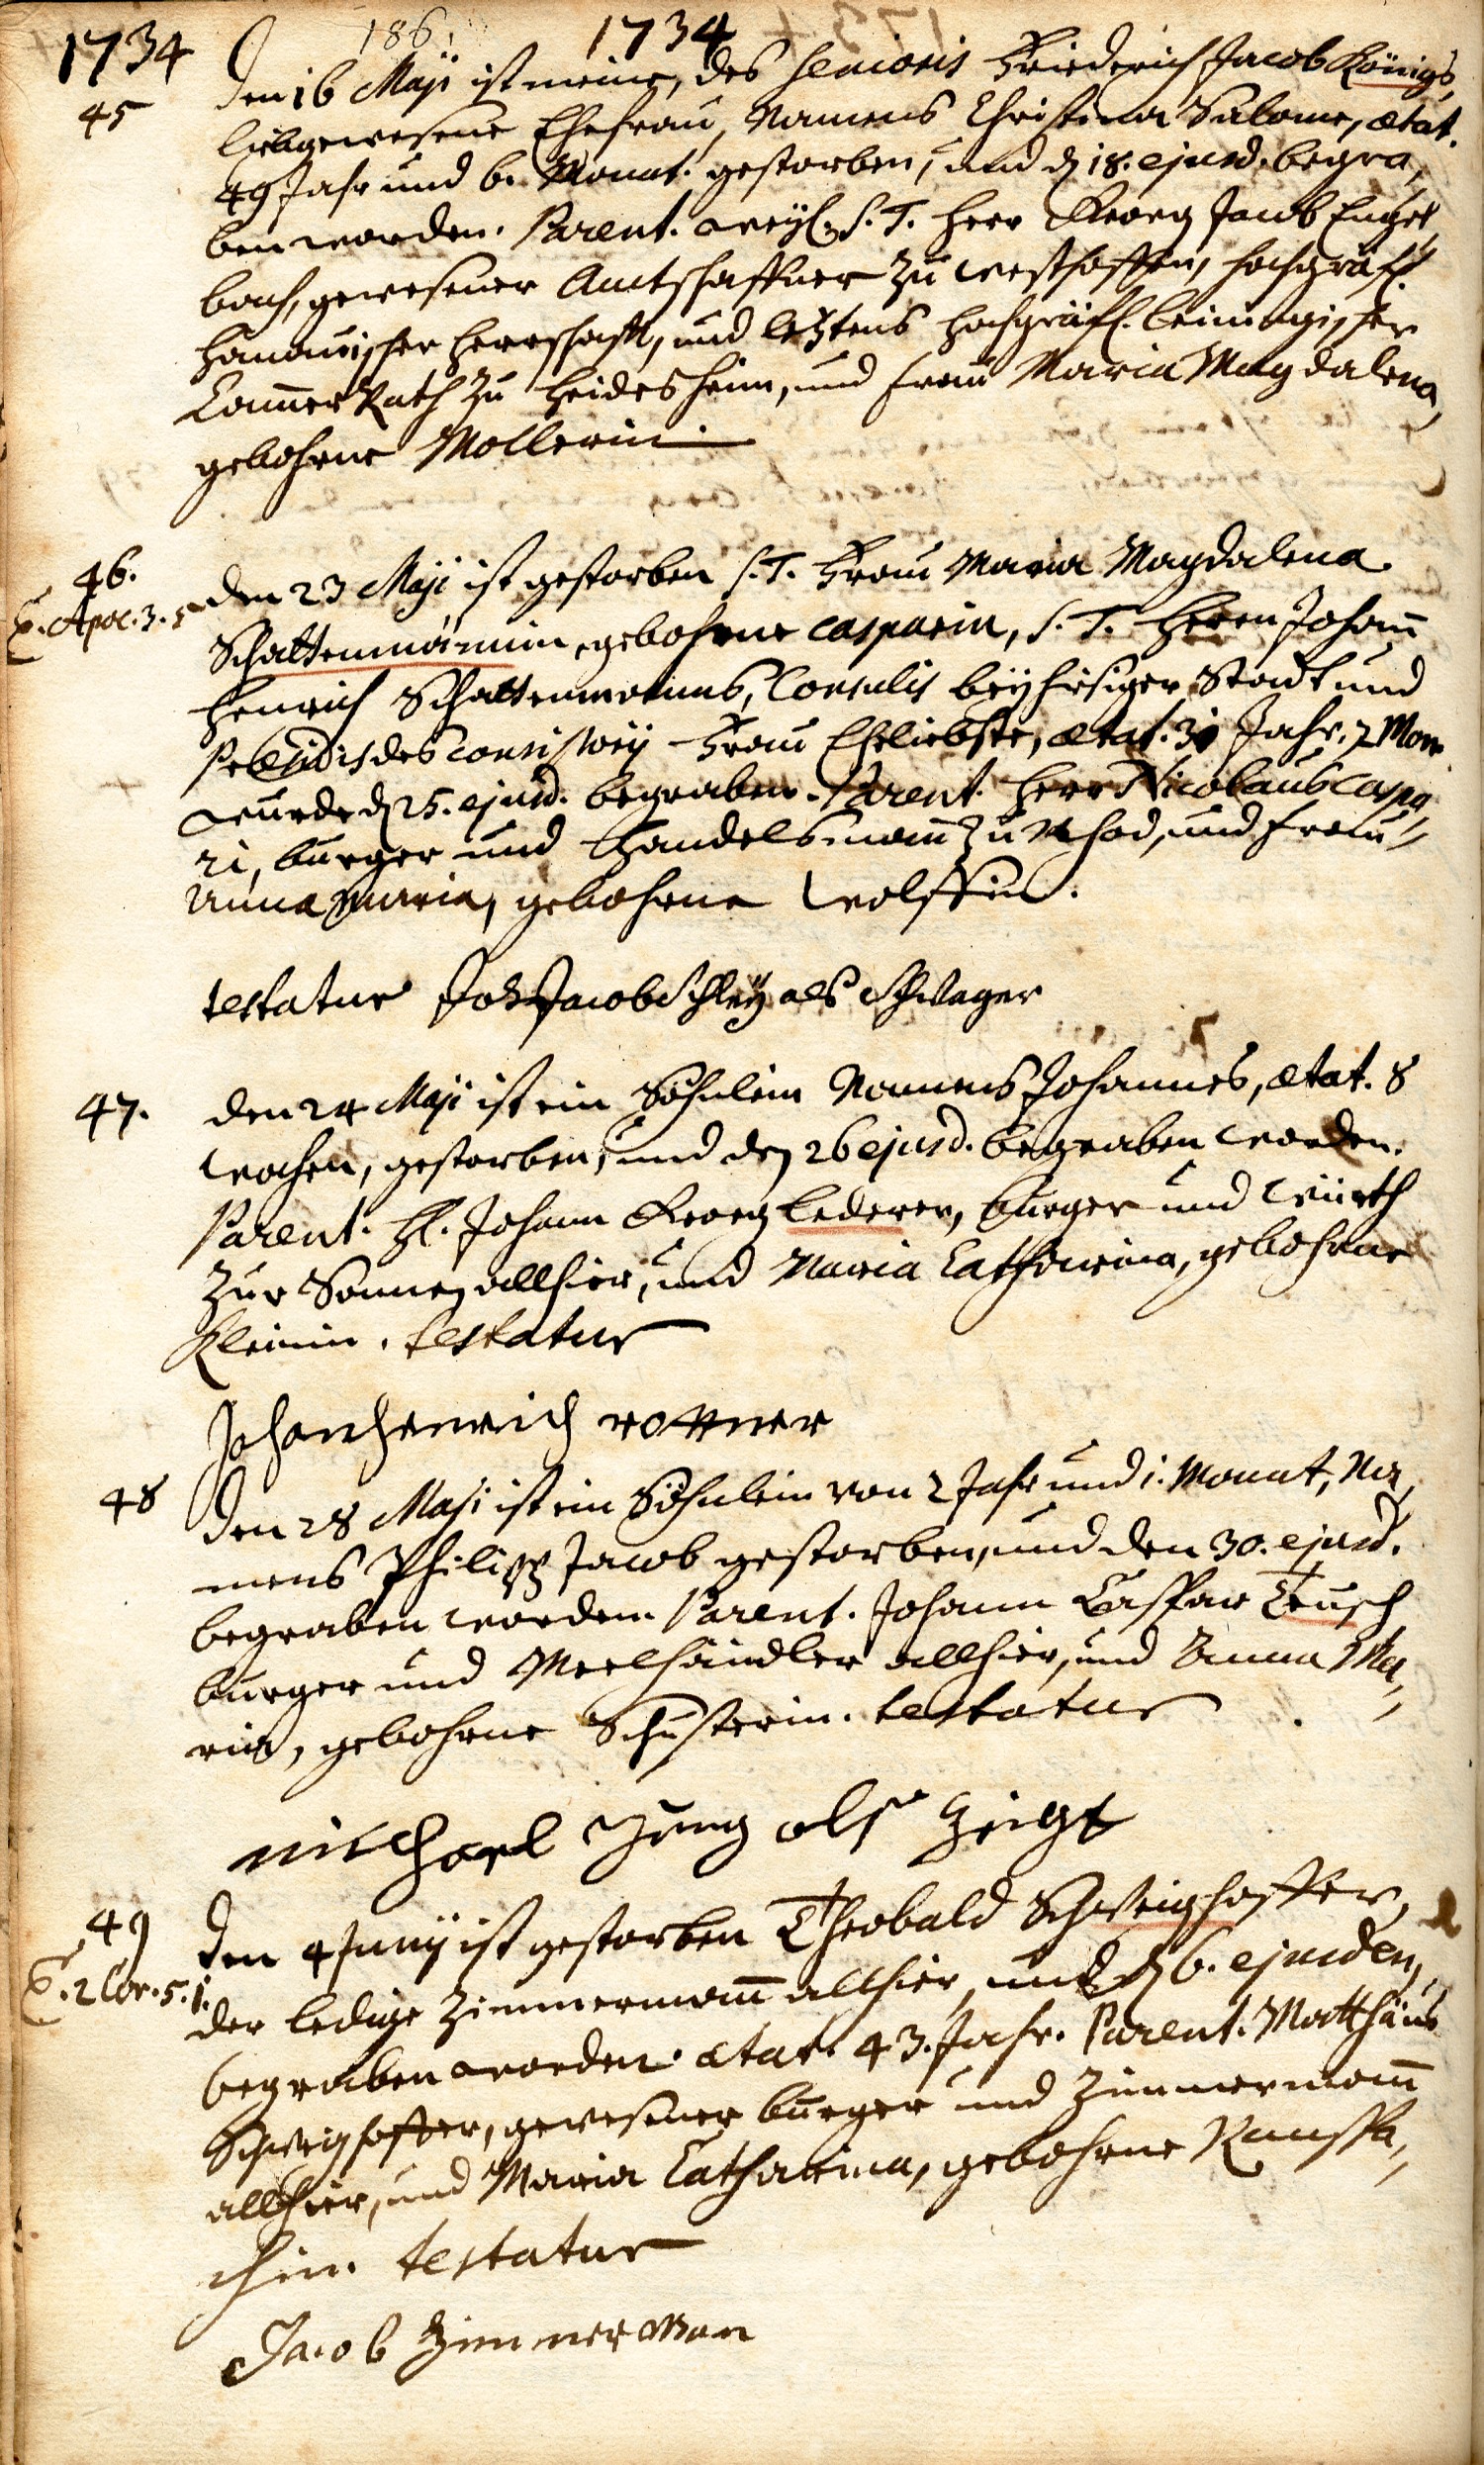 1734 186. 1734
45 Den 16 Maji ist meine, des Senioris Friederich Jacob Königs,
liebgewesene Ehefrau, Namens Christina Salome, ætat.
49 Jahr und 6. Monat. gestorben, und d. 18. ejusd. begra,
ben worden. Parent. weyl. S. T. Herr Georg Jacob Engel,
bach, gewesener Amtschaffner zu Westhoffen, hochgräfl.
Hanauischer Herrschafft, und letztens hochgräfl. Leiningischer
Cammer Rath zu Heidesheim, und Frau Maria Magdalena,
gebohrne Mollerin.
46. Den 23 Maji ist gestorben S. T. Frau Maria Magdalena
T. Apoc. 3. 5
Schattenmännin, gebohrne Casparin, S. T. Herrn Johann
Henrich Schattenmanns, Consulis bey hiesiger Stadt und
Præsidis des Consistorij Frau Eheliebste, ætat. 31 Jahr. 7 Mon.
wurde d. 25. ejusd. begraben. Parent. Herr Nicolaus Caspa,
ri, burger und Handelsmann zu Rhod, und Frau
Anna Maria, gebohrne Wolffin.
testatur Joh Jacob Schley als Schwager
47. Den 24 Maji ist ein Söhnlein Namens Johannes, ætat. 8
wochen, gestorben, und den 26 ejusd. begraben worden.
Parent. H. Johann Georg Lederer, burger und Würth
zur Sonnen allhier, und Maria Catharina, gebohrne
Kleinin. testatur
Johan henrich rottner
48 Den 28 Maji ist ein Söhnlein von 2 Jahr und 1. Monat, Na,
mens Philipp Jacob gestorben, und den 30. ejusd.
begraben worden. Parent. Johann Caspar Teusch
burger und Meelhändler allhier, und Anna Ma,
ria, gebohrne Schusterin. testatur
michael Jung alß Zeigt
49 Den 4 Junij ist gestorben Theobald Schweighoffer,
T. 2 Cor. 5. 1.
der ledige Zimmermann allhier, und d. 6. ejusdem,
begraben worden. ætat. 43. Jahr. Parent. Matthäus
Schweighoffer, gewesener burger und Zimmermann
allhier, und Maria Catharina, gebohrne Rauscha,
chin. testatur
Jacob Zimmerman